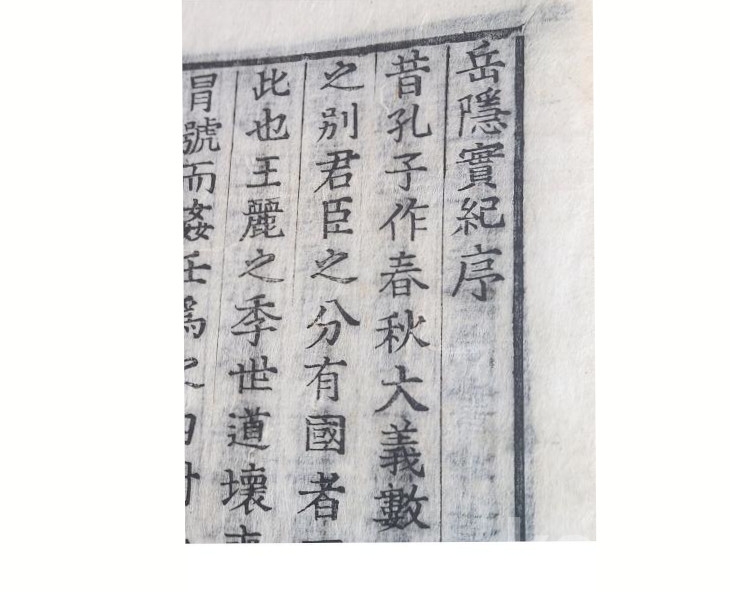 岳隱實紀序
昔孔子作春秋大義數
之別君臣之分有國者
此也王麗之季世道壞
冐號而姦壬爲之